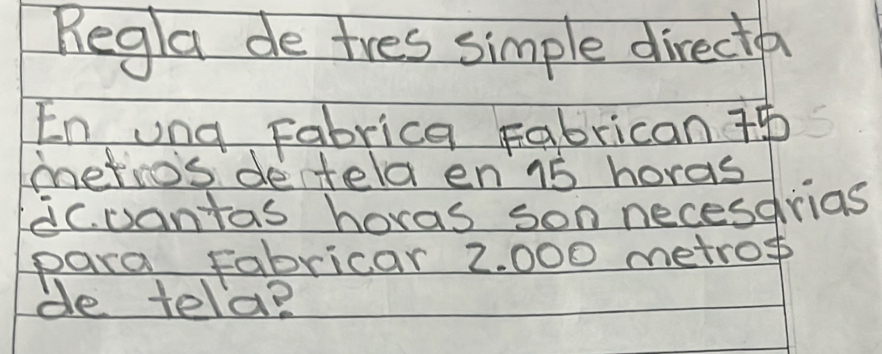 Regla de tres simple directa
En una Fabrica Fabrican 75
metros de tela en 15 horas
¿Cuantas horas son necesarias
para Fabricar 2.000 metros
de tela?